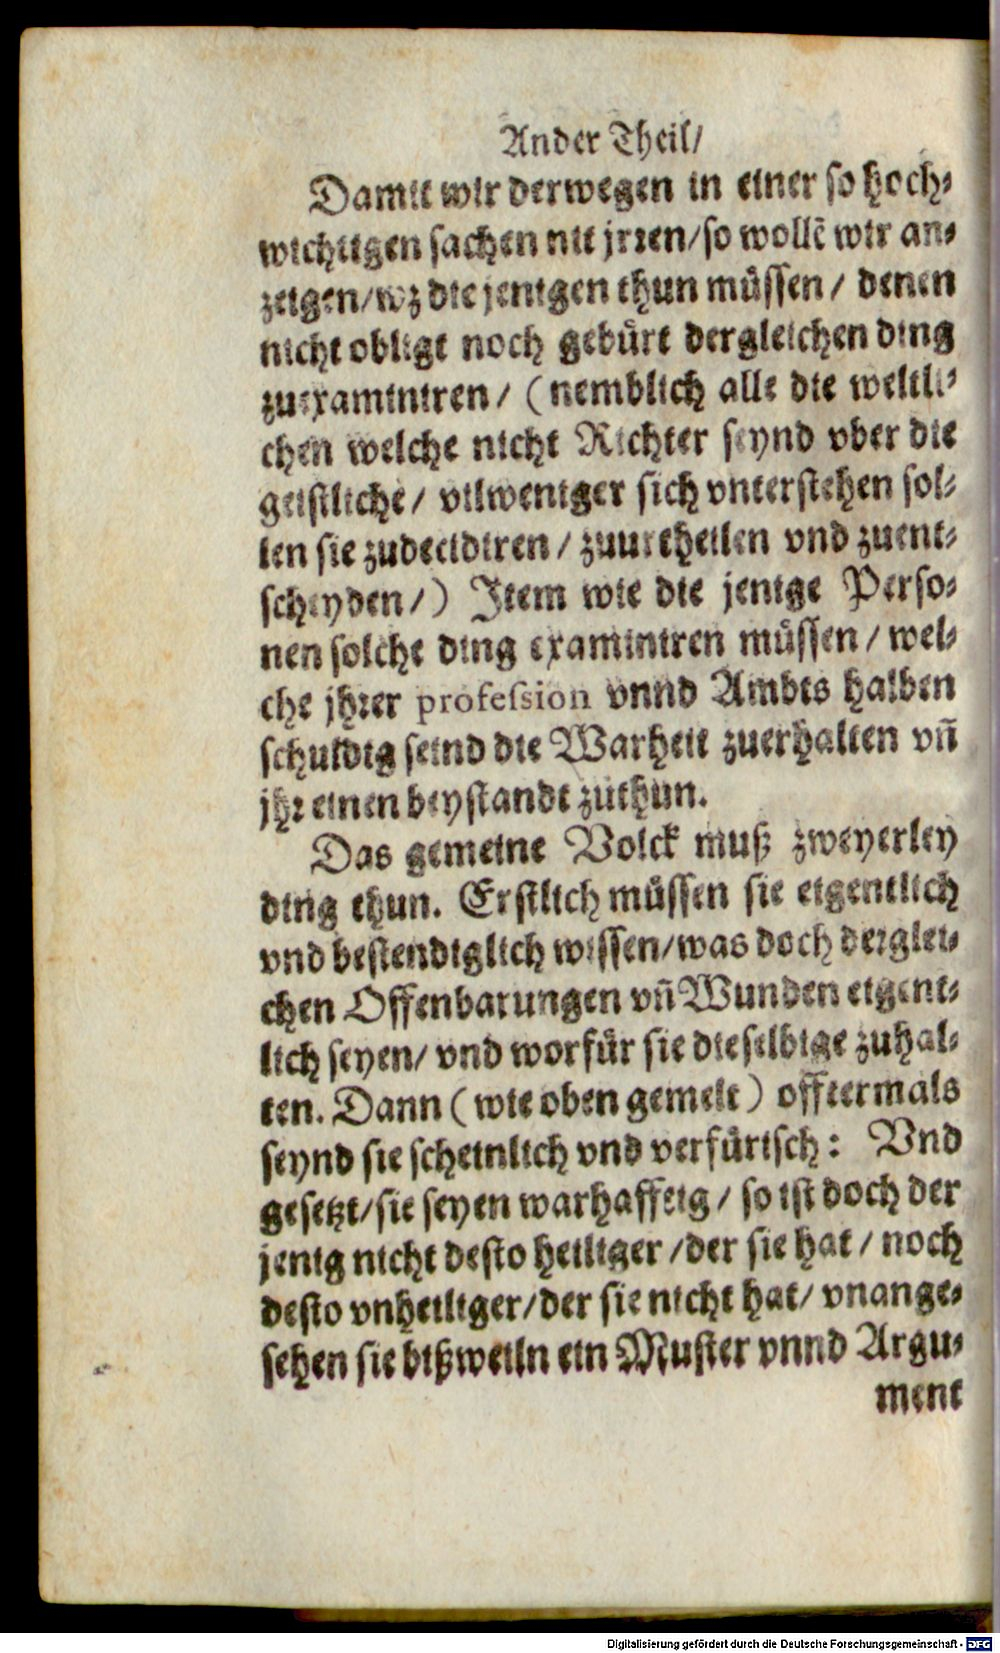 Ander Theil/
Damit wir derwegen in einer so hoch⸗
wichtigen sachen nit jrren/so wollẽ wir an⸗
zeigen/wz die jenigen thun müssen/ denen
nicht obligt noch gebürt dergleichen ding
zuexaminiren/ (nemblich alle die weltli⸗
chen welche nicht Richter seynd vber die
geistliche/ vilweniger sich vnterstehen sol⸗
len sie zudecidiren/ zuurtheilen vnd zuent⸗
scheyden/) Item wie die jenige Perso⸗
nen solche ding examiniren müssen/ wel⸗
che jhrer profession vnnd Ambts halben
schuldig seind die Warheit zuerhalten vñ
jhr einen beystandt zuthun.
Das gemeine Volck muß zweyerley
ding thun. Erstlich müssen sie eigentlich
vnd bestendiglich wissen/was doch derglei⸗
chen Offenbarungen vñ Wunden eigent⸗
lich seyen/ vnd worfür sie dieselbige zuhal⸗
ten. Dann (wie oben gemelt) offtermals
seynd sie scheinlich vnd verfürisch: Vnd
gesetzt/sie seyen warhafftig/ so ist doch der
jenig nicht desto heiliger/der sie hat/ noch
desto vnheiliger/der sie nicht hat/ vnange⸗
sehen sie bißweiln ein Muster vnnd Argu⸗
ment
Digitalisierung gefördert durch die Deutsche Forschungsgemeinschaft - DFG